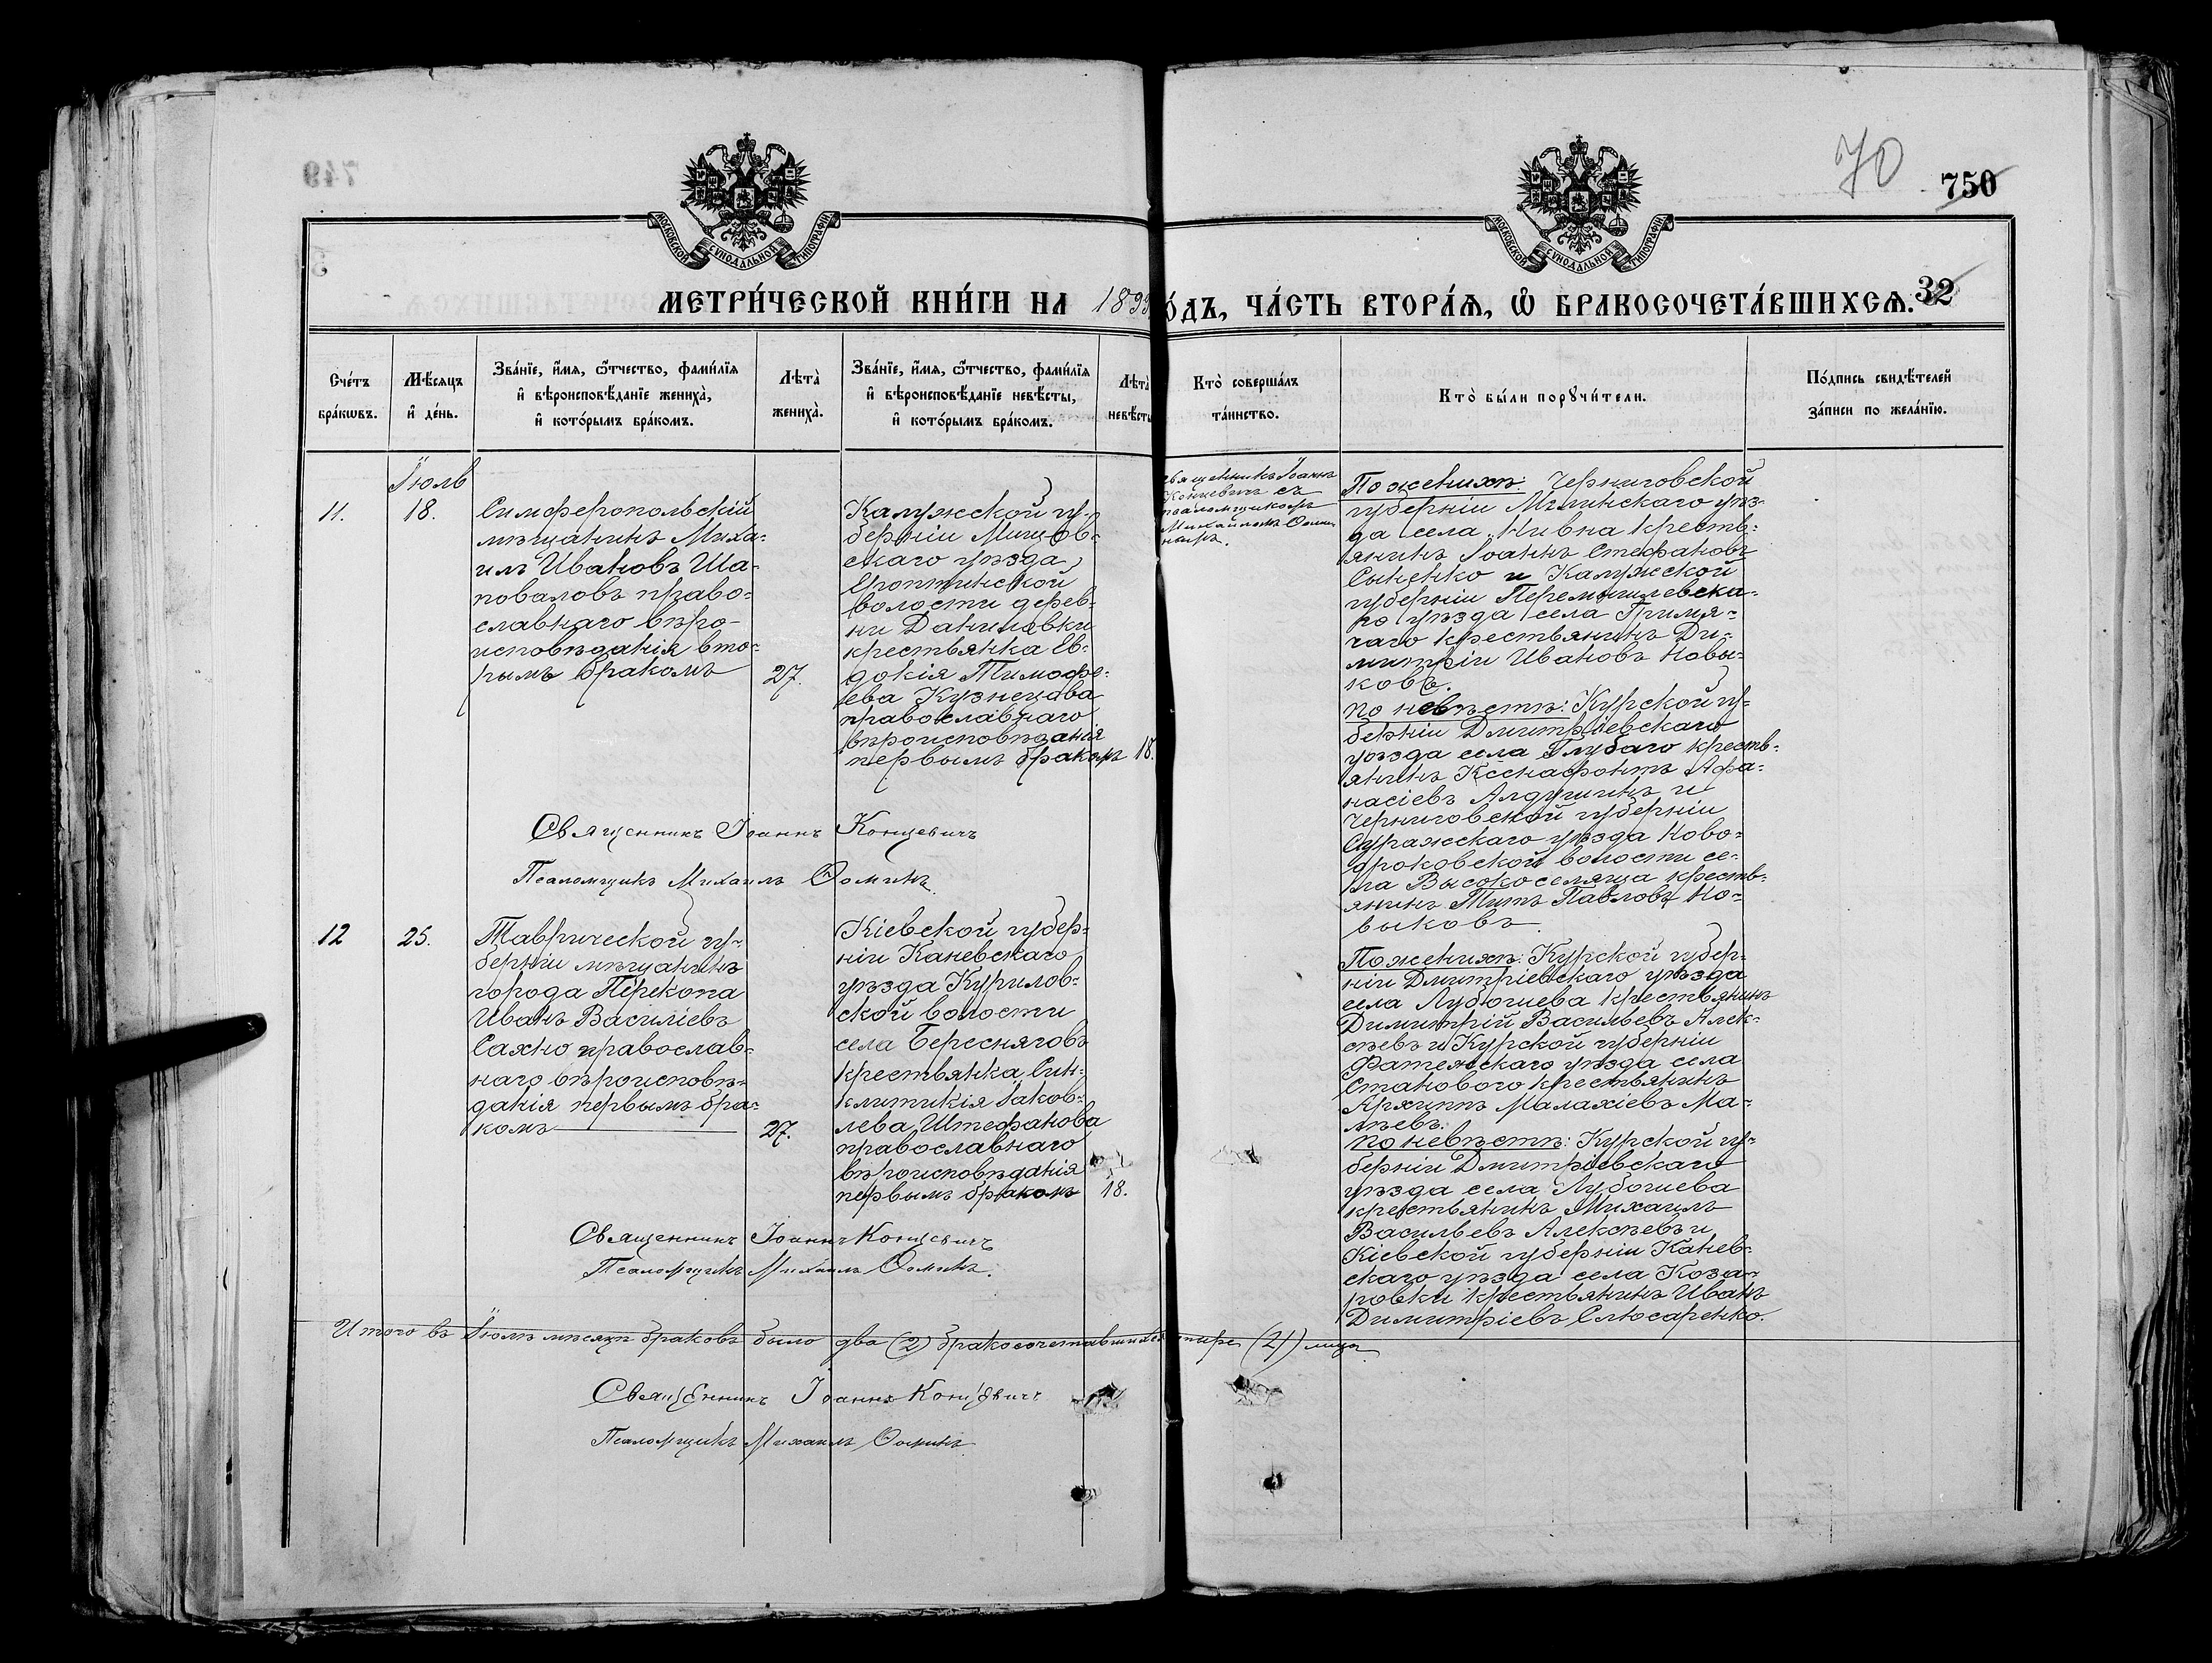 70
750
МОСКОВСКОЙ СѴНОДАЛЬНОЙ ТИПОГРАФІИ
МОСКОВСКОЙ СѴНОДАЛЬНОЙ ТИПОГРАФІИ
МЕТРИ́ЧЕСКОЙ КНИ́ГИ НА 1899
О́ДЪ, ЧА́СТЬ ВТОРА́Ѧ, Ѡ҆ БРАКОСОЧЕТА́ВШИХСѦ.
32
Сче́тъ
бра́кωвъ.
Мѣ́сяцъ
и҆ де́нь.
Зва́нїе, и҆́мя, ѻ҆́тчество, фами́лїя
и҆ вѣроисповѣ́данїе жениха̀,
и҆ кото́рымъ бра́комъ.
Лѣта̀
жениха̀.
Зва́нїе, и҆́мя, ѻ҆́тчество, фами́лїя
и҆ вѣроисповѣ́данїе невѣ́сты,
и҆ кото́рымъ бра́комъ.
Лѣта̀
невѣ́сты
Кто̀ соверша́лъ
та́инство.
Кто̀ бы́ли порꙋчи́тели.
По́дпись свидѣ́телей
за́писи по жела́нїю.
Іюль
11.
18.
Симферопольскій
мѣщанинъ Миха-
илъ Ивановъ Ша-
поваловъ право-
славнаго вѣро-
исповѣданія вто-
рымъ бракомъ
27.
Калужской гу-
берніи Мещов-
скаго уѣзда
волости дерев-
ни Даниловки
крестьянка Ев-
докія Тимофе-
ева Кузнецова
православнаго
вѣроисповѣданія
первымъ бракомъ
18.
священникъ Іоаннъ
Концевичъ съ
псаломщикомъ
Михаиломъ Ѳоми-
нымъ.
По женихѣ: Черниговской
губерніи Мглинскаго уѣз-
да села Нивна кресть-
янинъ Іоаннъ Стефановъ
Сыненко и Калужской
губерніи Перемышлевска-
го уѣзда села Гримя-
чаго крестьянинъ Ди-
митрій Ивановъ Новы-
ковъ.
По невѣстѣ: Курской гу-
берніи Дмитріевскаго
уѣзда села Глубаго кресть-
янинъ Ксенафонтъ Афа-
насіевъ Алдушинъ и
Черниговской губерніи
Суражскаго уѣзда Ново-
дроковской волости се-
ла Высокоселища кресть-
янинъ Титъ Павловъ Но-
выковъ.
Священникъ Іоаннъ Концевичъ
Псаломщикъ Михаилъ Ѳоминъ.
12
25.
Таврической гу-
берніи мѣщанинъ
города Перекопа
Иванъ Василіевъ
Сахно православ-
наго вѣроисповѣ-
данія первымъ бра-
комъ
27.
Кіевской губер-
ніи Каневскаго
уѣзда Курилов-
ской волости
села Береснягов
крестьянка Син-
клитикія Іаков-
лева Штефанова
православнаго
вѣроисповѣданія
первымъ бракомъ
18.
По женихѣ: Курской губер-
ніи Дмитріевскаго уѣзда
села Лубошева крестьянинъ
Димитрій Васильевъ Алек-
сѣевъ и Курской губерніи
Фатежскаго уѣзда села
Становаго крестьянинъ
Архиппъ Малахіевъ Ма-
лѣевъ.
По невѣстѣ: Курской гу-
берніи Дмитріевскаго
уѣзда села Лубошева
крестьянинъ Михаилъ
Васильевъ Алексѣевъ и
Кіевской губерніи Канев-
скаго уѣзда села Коза-
ровки крестьянинъ Иванъ
Димитріевъ Слюсаренко.
Священникъ Іоаннъ Концевичъ
Псаломщикъ Михаилъ Ѳоминъ.
Итого въ Іюлѣ мѣсяцѣ браковъ было два (2) бракосочетавшихся четыре (4) лица
Священникъ Іоаннъ Концевичъ
Псаломщикъ Михаилъ Ѳоминъ